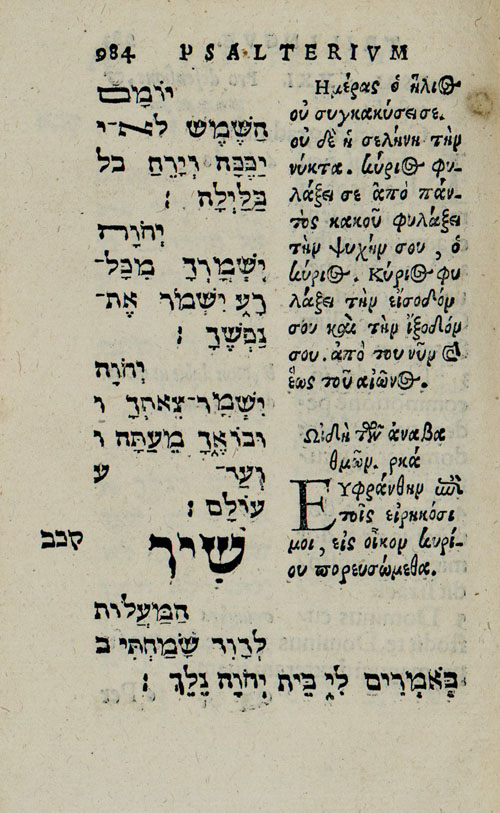 984 PSALTERIVM
יוֹמָם
הַשֶּׁמֶשׁ לֹא־י
יַכֶּכָּה וְיָרֵחַ בל
בַּלָּיְלָה ׃
יְהוָֹה
יִשְׁמָרְךָ מִכָּל־
רָע יִשְׁמוֹר אֶת־
נַפְשֶׁךָ ׃
יְהוָֹה
יִשְׁמָר־צֵאתְךָ ו
וּבוֹאֶךָ מֵעַתָּה ו
וְעַד־ ע
עוֹלָם ׃
קכב
שִׁיר
הַמַּעֲלוֹת
לְדָוִד שָׂמַחְתִּי ב
בְּאֹמְרִים לִי בֵּית יְהוָֹה נֵלֵךְ ׃
Ημέρας ὁ ἥλιος
οὐ συγκακύσει σε.
οὐ δὲ ἡ σελήνη τὴν
νύκτα. κύριος φυ-
λάξει σε ἀπὸ πάν-
τὸς κακοῦ φυλάξει
τὴν ψυχήν σου, ὁ
κύριος. Κύριος φυ
λάξει τὴν εἰσοδόν
σου καὶ τὴν ἐξοδόν
σου. ἀπὸ του νῦν καὶ
ἕως τοῦ αἰῶνος.
Ωιδὴ τῶν ἀναβα
θμῶν. ρκά
ΕΥφράνθην ἐπὶ
τοῖς εἰρηκόσι
μοι, εἰς οἶκον κυρί-
ου πορευσώμεθα.